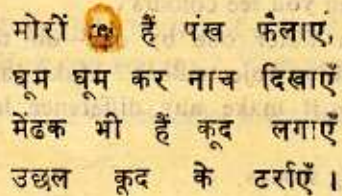 मोरों हैं पंख फैलाए,
घूम घूम कर नाच दिखाएँ
मेंढक भी हैं कूद लगाएँ
उछल कूद के टर्राएँ ।